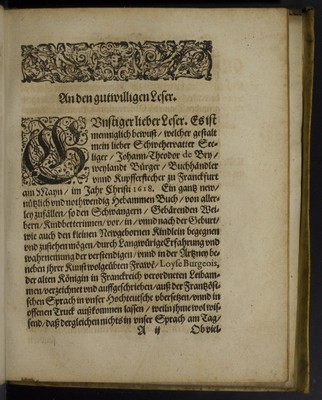 An den gutwilligen Leser.
GUnstiger lieber Leser. Es ist
menniglich bewust / welcher gestalt
mein lieber Schwehervatter See-
liger / Johann-Theodor de Bry /
weylandt Bürger / Buchhändler
vnnd Kupfferstecher zu Franckfurt
am Mayn / im Jahr Christi 1618. Ein gantz new /
nützlich vnd nothwendig Hebammen Buch / von aller-
ley zufällen / so den Schwangern / Gebärenden Wei-
bern / Kindbetterinnen / vor / in / vnnd nach der Geburt /
wie auch den kleinen Newgebornen Kindlein begegnen
vnd zustehen mögen / durch Langwürige Erfahrung vnd
wahrnemung der verstendigen / vnnd in der Artzney be-
neben jhrer Kunst wolgeübten Frawē / Loyse Burgeois,
der alten Königin in Franckreich verordneten Leibam-
men / verzeichnet vnd auffgeschrieben / auß der Frantzösi-
schen Sprach in vnser Hochteutsche vbersetzen / vnnd in
offenen Truck außkommen lassen / weiln jhme wol wis-
send / daß dergleichen nichts in vnser Sprach am Tag /
A ij Ob viel-